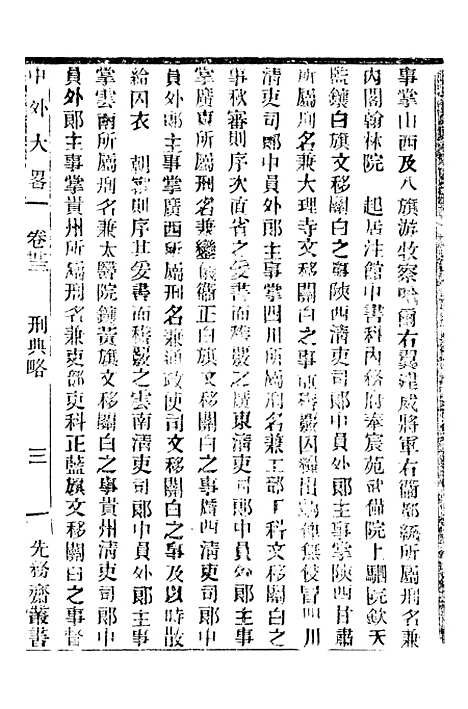 事掌山西及八旗游牧察哈爾右翼綏遠威將軍右衞都統所屬刑名兼
內閣翰林院　起居注館中書科內務府奉宸苑武備院上駟院欽天
監鑲白旗文移關白之事陝西清吏司郎中員外郎主事掌陝西甘肅
所屬刑名兼大理寺文移關白之事嚴囚糧出納無侵冒四川
清吏司郎中員外郎主事掌四川所屬刑名兼工部工科文移關白之
事秋審則序次直省之爰書而稽嚴之廣東清吏司郎中員外郎主事
掌廣東所屬刑名兼鑾儀衞正白旗文移關白之事廣西清吏司郎中
員外郎主事掌廣西所屬刑名兼通政使司文移關白之事及以時散
給囚衣　朝審則序其爰書而稽嚴之雲南清吏司郎中員外郎主事
掌雲南所屬刑名兼太醫院鑲黃旗文移關白之事貴州清吏司郎中
員外郎主事掌貴州所屬刑名兼吏部吏科正藍旗文移關白之事督
中外大畧　卷　刑典略　三　先務齋叢書